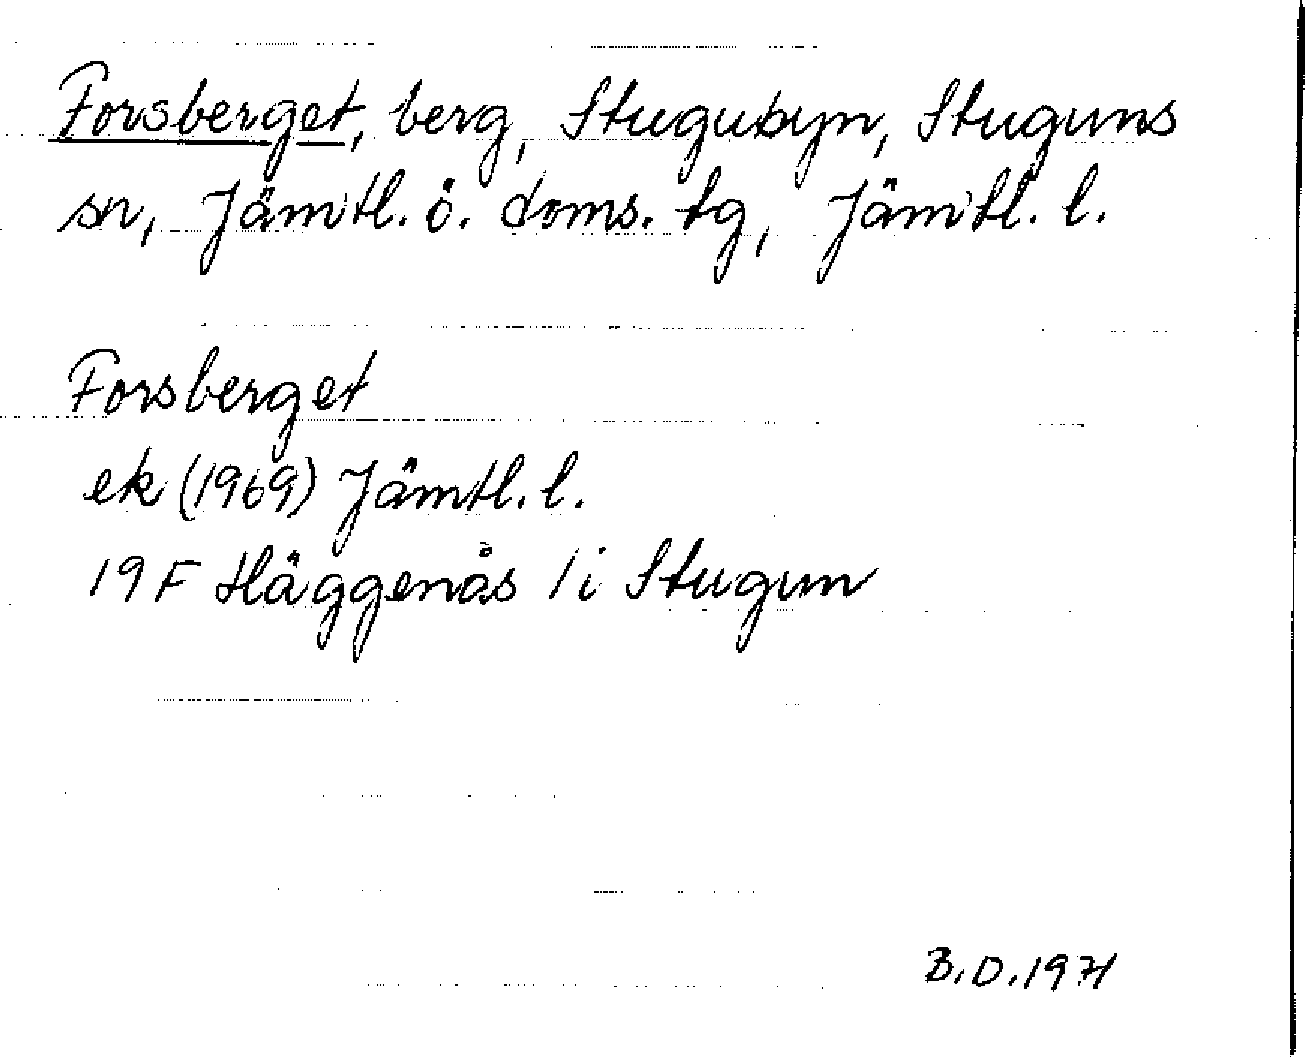 Forsberget, berg, Stugubyn, Stuguns
sn, Jämtl. ö. doms. tg, Jämtl. l.
Forsberget
ek (1969) Jämtl. l.
19 F Häggenås 1 i Stugun
B.D.1971